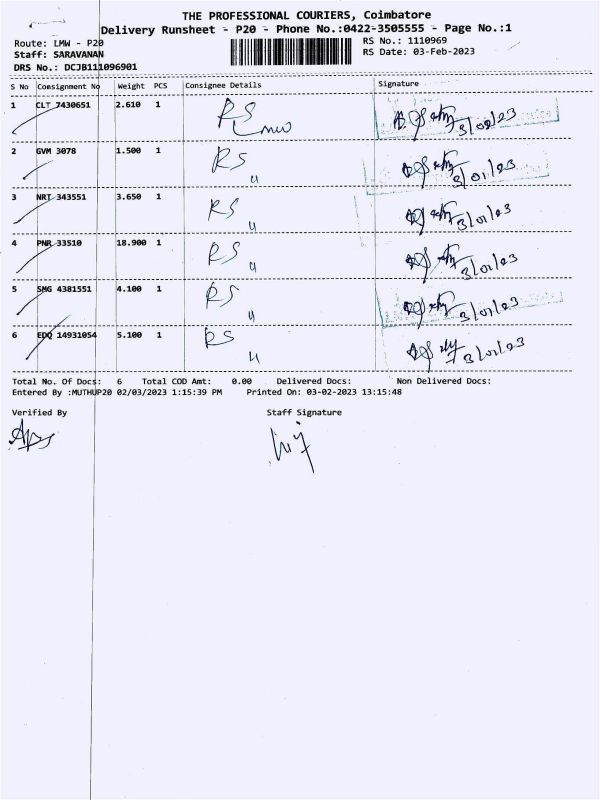 THE PROFESSIONAL COURIERS, Coimbatore
Delivery Runsheet - P20 - Phone No.:0422-3505555 - Page No.:1
Route: LMW - P20
RS No.: 1110969
Staff: SARAVANAN
RS Date: 03-Feb-2023
DRS No.: DCJB111096901
S No Consignment No Weight PCS Consignee Details Signature
1 CLT 7430651 2.610 1 RS 3/02/23
LMW
2 GVM 3078 1.500 1 RS 3/01/23
3 NRT 343551 3.650 1 RS 3/01/23
4 PNR 33510 18.900 1 RS 3/01/23
5 SMG 4381551 4.100 1 RS 3/01/23
6 EDQ 14931054 5.100 1 RS 3/01/23
Total No. Of Docs: 6 Total COD Amt: 0.00 Delivered Docs: Non Delivered Docs:
Entered By :MUTHUP20 02/03/2023 1:15:39 PM Printed On: 03-02-2023 13:15:48
Verified By Staff Signature